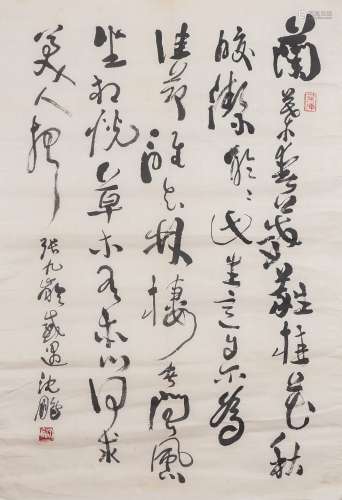 蘭葉春葳蕤桂花秋
皎潔欣欣此生意自尔為
佳節誰知林棲者聞風
坐相悦草木有本心何求
美人折
張九齡感遇 沈鵬